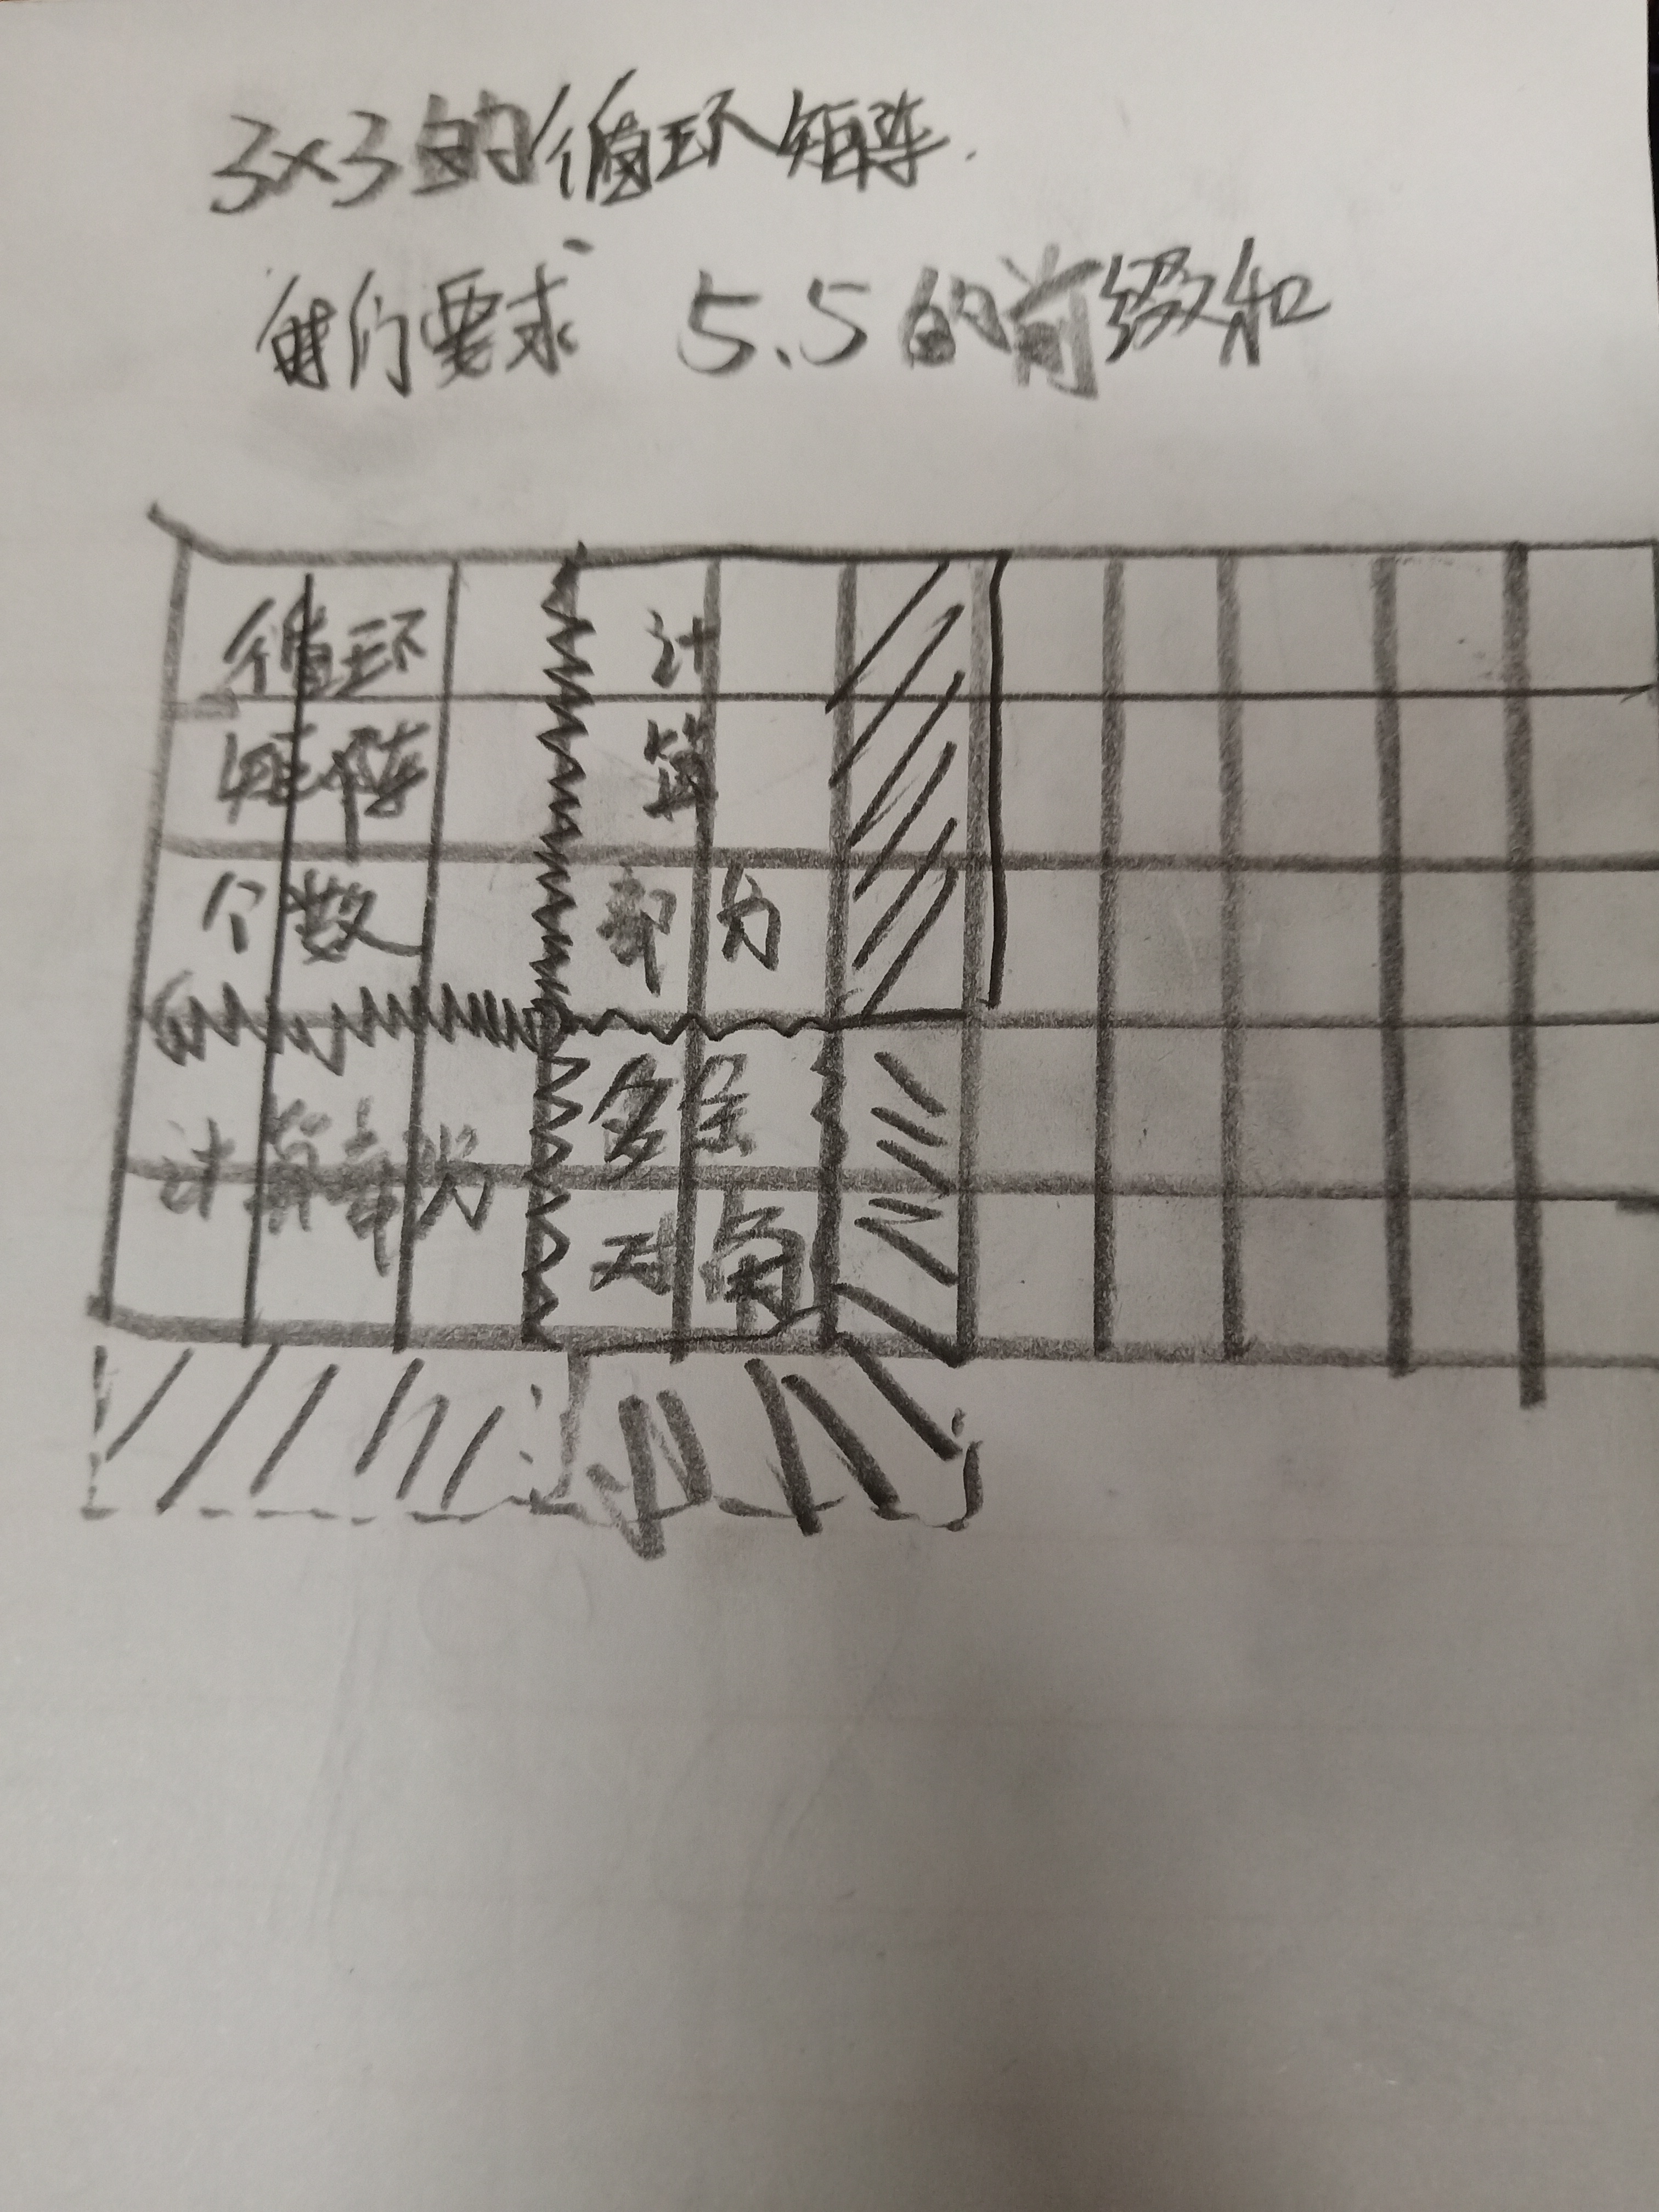 3×3的循环矩阵.
我们要求 5.5的前缀和
循环 计
矩阵 算
个数 部分
的 多余
计算部分 对角